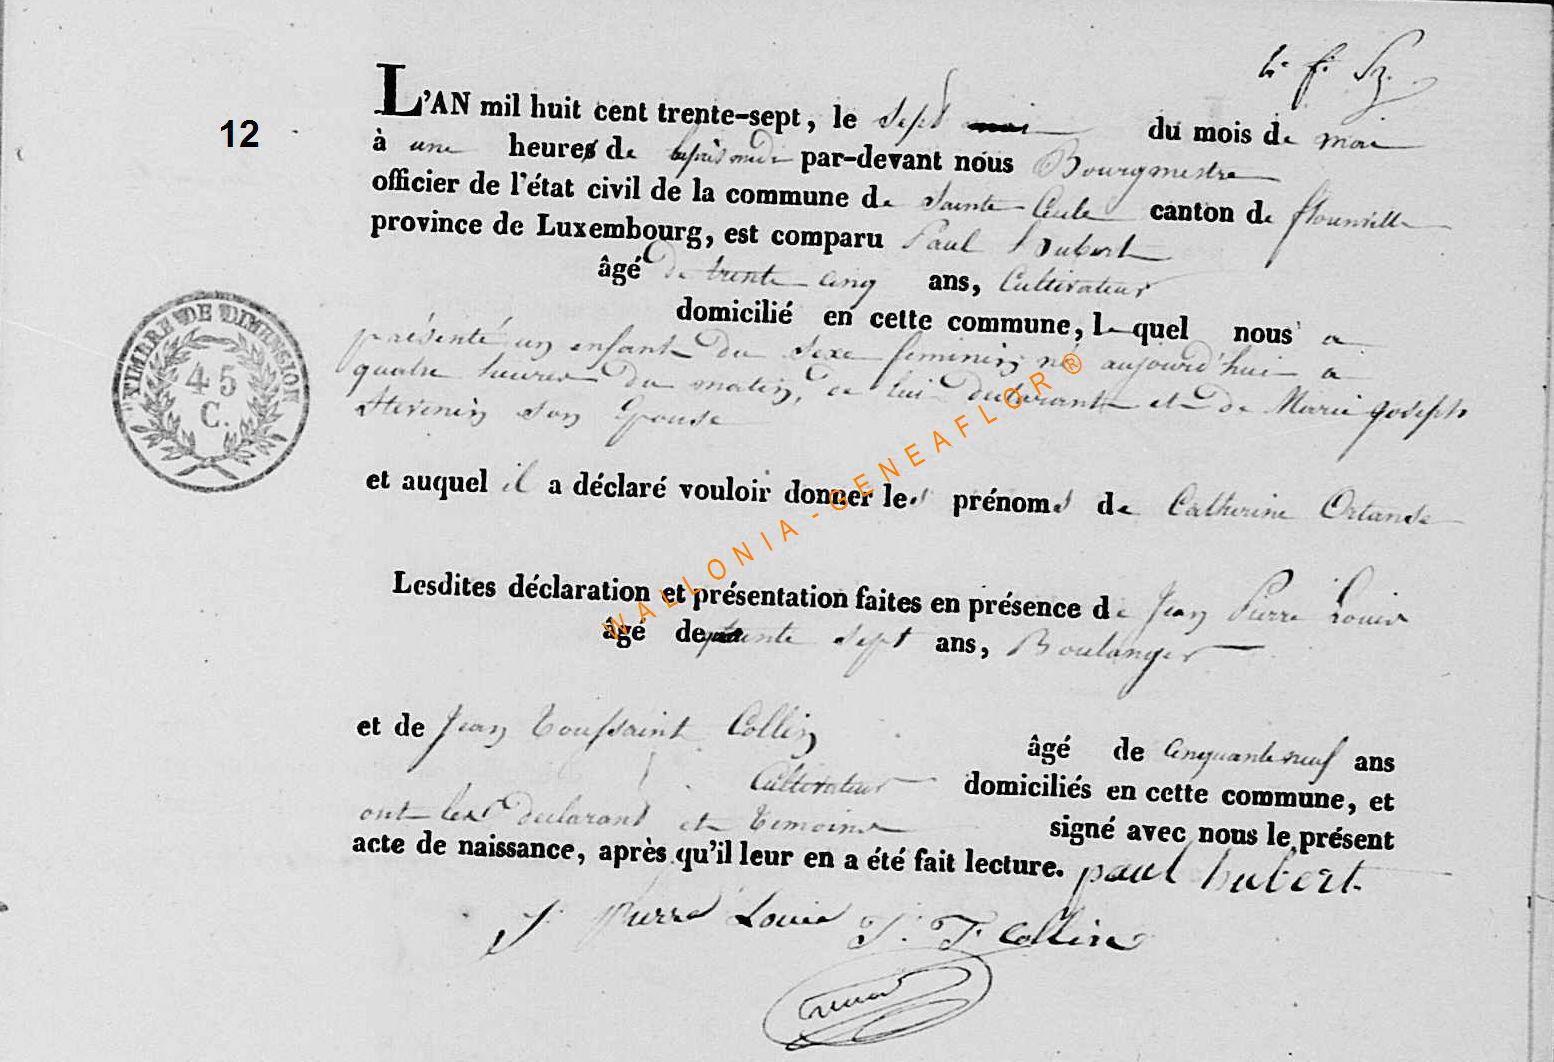 12
L'AN mil huit cent trente-sept, le sept du mois de mai
à une heure de après midi par-devant nous Bourgmestre
officier de l'état civil de la commune de Sainte Cecile canton de florenville
province de Luxembourg, est comparu Paul Hubert
âgé de trente cinq ans, Cultivateur
domicilié en cette commune, lequel nous a
présenté un enfant du sexe feminin né aujourd'hui a
quatre heures du matin, de lui declarant et de Marie Joseph
son Epouse
et auquel il a déclaré vouloir donner les prénoms de Catherine Ortance
Lesdites déclaration et présentation faites en présence de Jean Pierre Louis
âgé de trente sept ans, Boulanger
et de Jean Toussaint Collin
âgé de cinquante neuf ans
Cultivateur domiciliés en cette commune, et
ont les declarant et temoins signé avec nous le présent
acte de naissance, après qu'il leur en a été fait lecture. paul hubert
J. Pierre Louis J. T. Collin
TIMBRE DE DIMENSION
45
C.
WALLONIA - GENEAFLOR ®